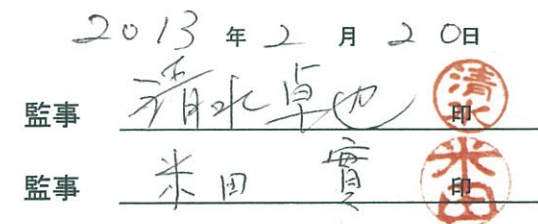 2013年2月20日
監事 清水卓也 印 清水
監事 米田 實 印 米田